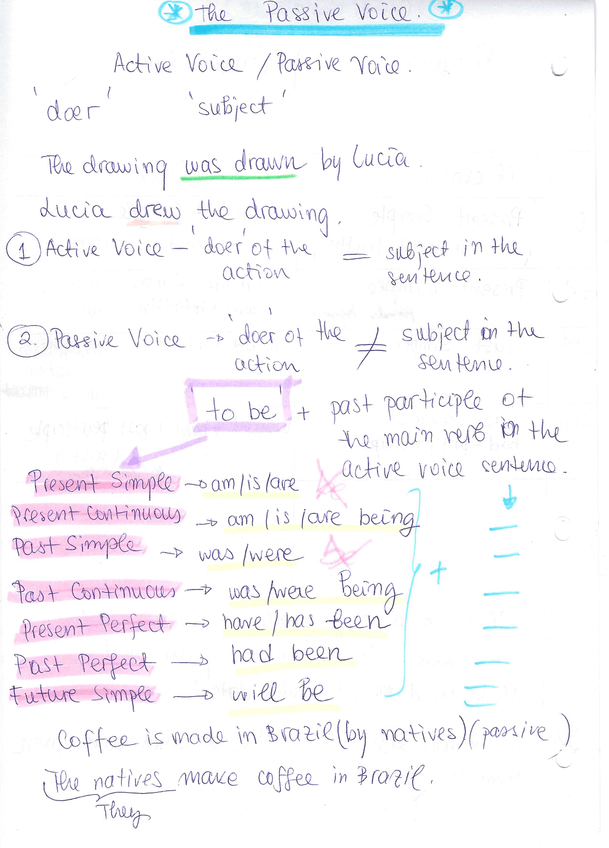 The Passive Voice.
Active Voice / Passive Voice.
'doer' 'subject'
The drawing was drawn by Lucia.
Lucia drew the drawing.
1 Active Voice – 'doer' of the action = subject in the sentence.
2. Passive Voice → 'doer' of the action ≠ subject in the sentence.
'to be' + past participle of the main verb in the active voice sentence.
Present Simple → am/is/are
Present Continuous → am/is/are being
Past Simple → was/were
Past Continuous → was/were being
Present Perfect → have/has been
Past Perfect → had been
Future Simple → will be
+
Coffee is made in Brazil (by natives) (passive)
The natives make coffee in Brazil.
They